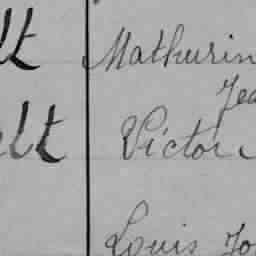 lt Mathurin
Jea
elt Victor
Louis Jo